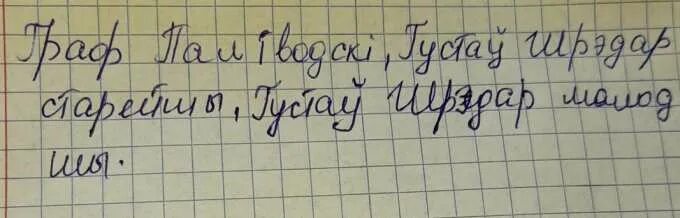 Граф Паліводскі, Густаў Шрэдар
старейшы, Густаў Шрэдар малод
шы.